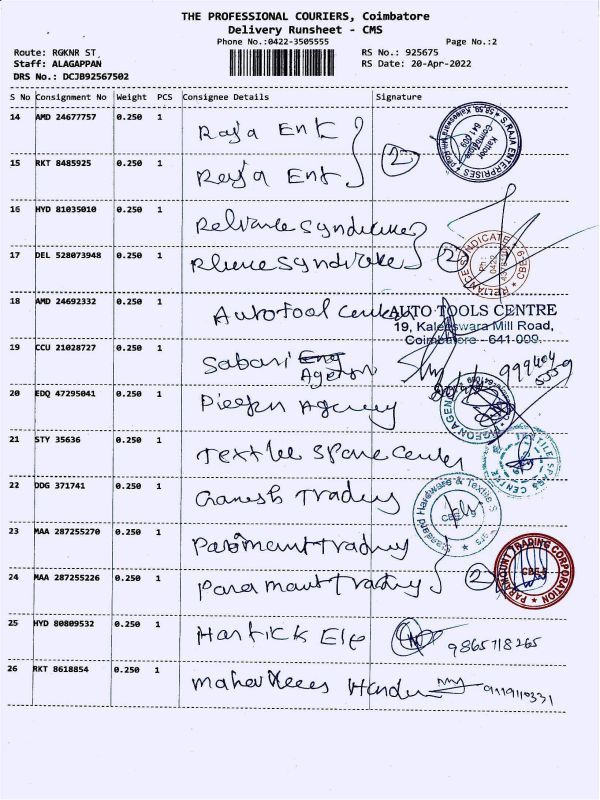 THE PROFESSIONAL COURIERS, Coimbatore
Delivery Runsheet - CMS
Phone No.:0422-3505555 Page No.:2
Route: RGKNR ST RS No.: 925675
Staff: ALAGAPPAN RS Date: 20-Apr-2022
DRS No.: DCJB92567502
S No Consignment No Weight PCS Consignee Details Signature
14 AMD 24677757 0.250 1 Raja Ent
15 RKT 8485925 0.250 1 Raja Ent 2
S.RAJA ENTERPRISES
Kattoor
Coimbatore
641 009
16 HYD 81035010 0.250 1 Reliance Syndicate
17 DEL 528073948 0.250 1 Syndicate 2
RELIANCE SYNDICATE CBE-9
18 AMD 24692332 0.250 1 Auto Tool
AUTO TOOLS CENTRE
19, Kaleeswara Mill Road,
Coimbatore - 641-009.
19 CCU 21028727 0.250 1 Sabari
20 EDQ 47295041 0.250 1 Agency
PIGEON AGEN
21 STY 35636 0.250 1 Spare Center
22 DDG 371741 0.250 1 Ganesh Trading
Hardware & Textile
23 MAA 287255270 0.250 1 Paramount Trading
24 MAA 287255226 0.250 1 Paramount Trading 2
PARAMOUNT TRADING CORPORATION
25 HYD 80809532 0.250 1 Hartick Ele 9865718265
26 RKT 8618854 0.250 1